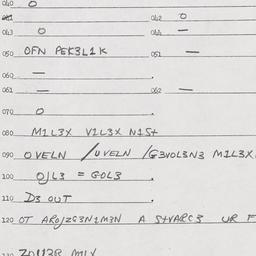 040 O
042 O
043 O 044 —
050 OFN PEK3L1K 051 —
060 —
061 — 062 —
070 O
080 M1L3X V1L3X N1St
090 OVELN /UVELN /G3VOL3N3 M1L3X.
100 OJL3 = GOL3
110 D3 OUT
120 OT AROJZG3N1M3N A StVARC3 UR F